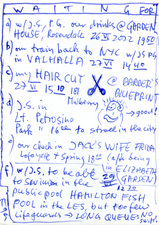 WAITING FOR
a) w/J.S., P.G. our drinks @ GARDEN
HOUSE, Rosendale 26 VI 2022 19
b) our train back to NYC w/JS PG
in VALHALLA 27 VI 14 40
c) my HAIR CUT @ BARBER'S
27 VI 15 10 BLUEPRINT
d) J.S. in Mulberry good!
Lt. Petrosino
Park to street in the city
e) our check in JACK'S WIFE FRIDA
Lafayette + Spring after being
f) w/J.S. to be able ELIZABETH
to swim in the GARDEN
public pool HAMILTON FISH
POOL in the LES, but too few
lifeguards → LONG QUEUES